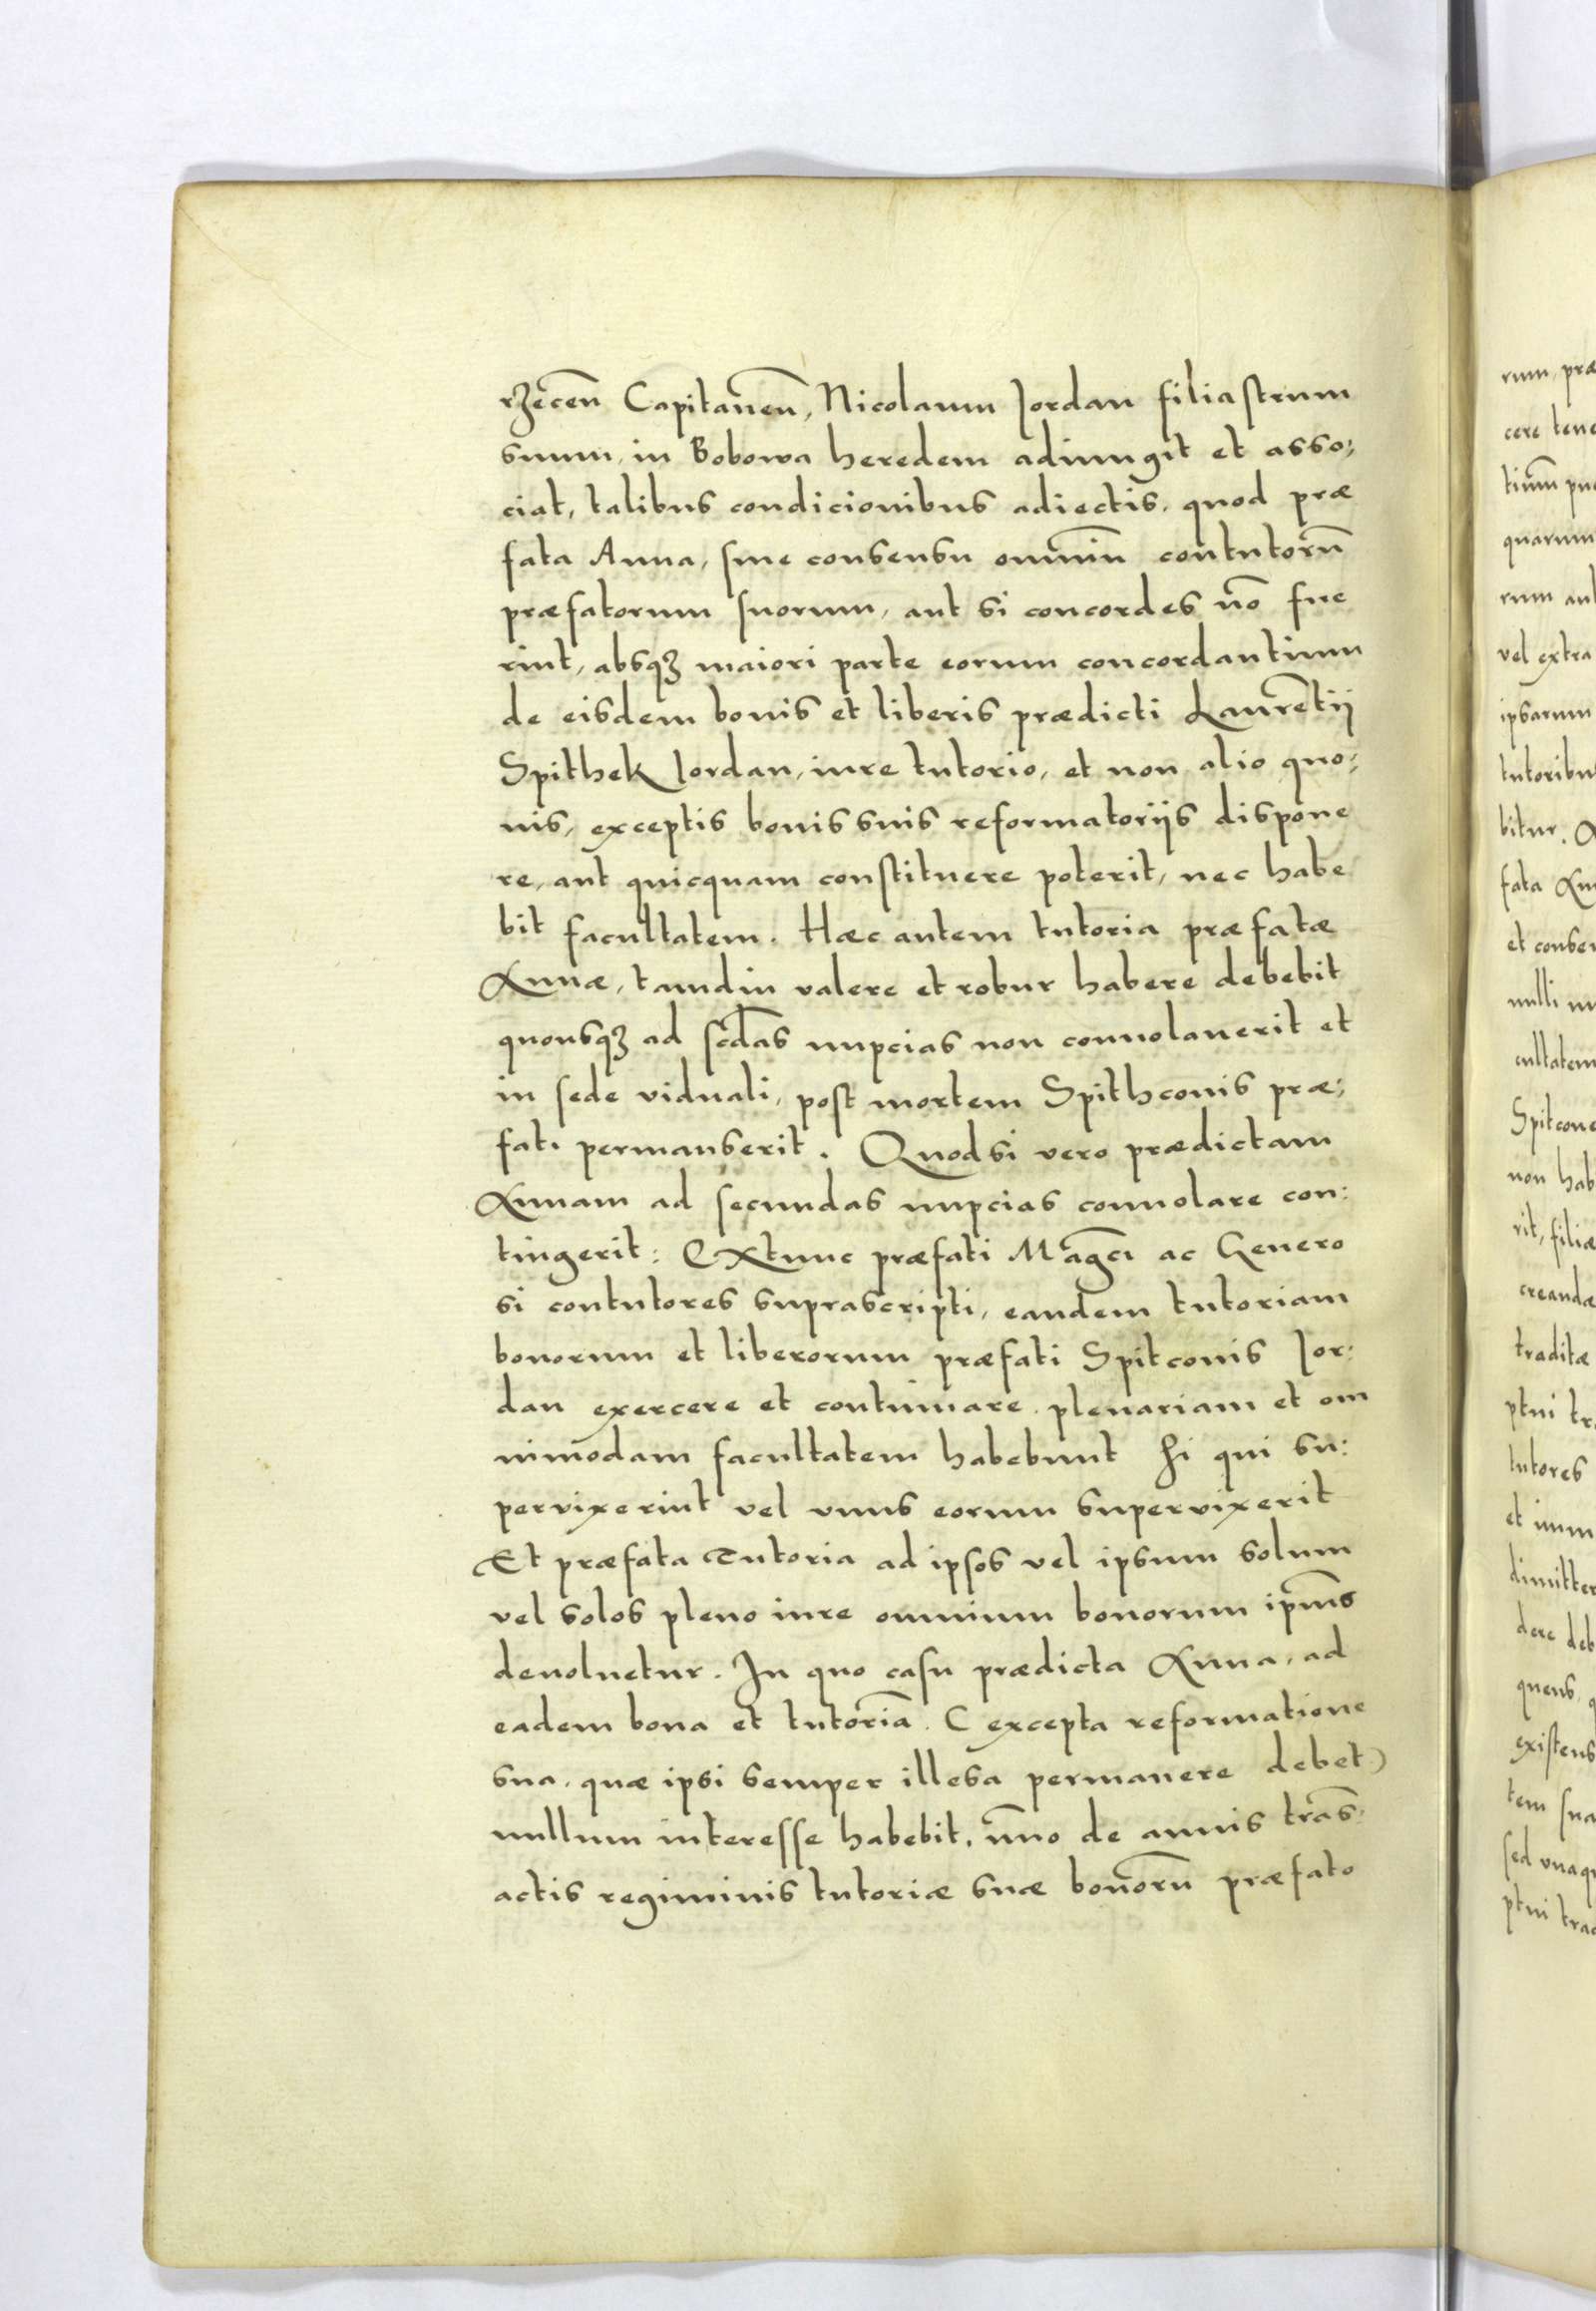 rzecen̄ Capitaneū, Nicolaum Jordan filiastrum
suum, in Bobowa heredem adiungit et asso;
ciat, talibus condicionibus adiectis, quod præ
fata Anna, sine consensu omniū contutorū
præfatorum suorum, aut si concordes nō fue
rint, absqȝ maiori parte eorum concordantium
de eisdem bonis et liberis prædicti Laurētij
Spithek Jordan, iure tutorio, et non alio quo;
uis, exceptis bonis suis reformatorijs dispone
re, aut quicquam constituere poterit, nec habe
bit facultatem. Hæc autem tutoria præfatæ
Annæ, tamdiu valere et robur habere debebit
quousqȝ ad scd̄as nupcias non conuolauerit et
in sede viduali, post mortem Spithconis præ;
fati permanserit. Quod si vero prædictam
Annam ad secundas nupcias conuolare con:
tingerit: Extunc præfati Mag̅ci ac Genero
si contutores suprascripti, eandem tutoriam
bonorum et liberorum præfati Spitconis Jor:
dan exercere et continuare, plenariam et om
nimodam facultatem habebunt hi qui su:
pervixerint vel vnus eorum supervixerit
Et præfata Tutoria ad ipsos vel ipsum solum
vel solos pleno iure omnium bonorum ip̄ius
deuoluetur. In quo casu prædicta Anna, ad
eadem bona et tutoriā. ( excepta reformatione
sua, quæ ipsi semper illesa permanere debet)
nullum interesse habebit, ȳmo de annis trās:
actis regiminis tutoriæ suæ bonorū præfato
rum, præ
cere tene
quarum
rum aut
vel extra
ipsarum
tutoribu
bitur. A
fata An
et consen
nulli
cultatem
Spitcone
non hab
rit, filiæ
creandæ
traditæ
ptui tr
tutores
et imm
dimitter
dere deb
quens, q
existens
tem sua
sed vnaqu
ptui trad